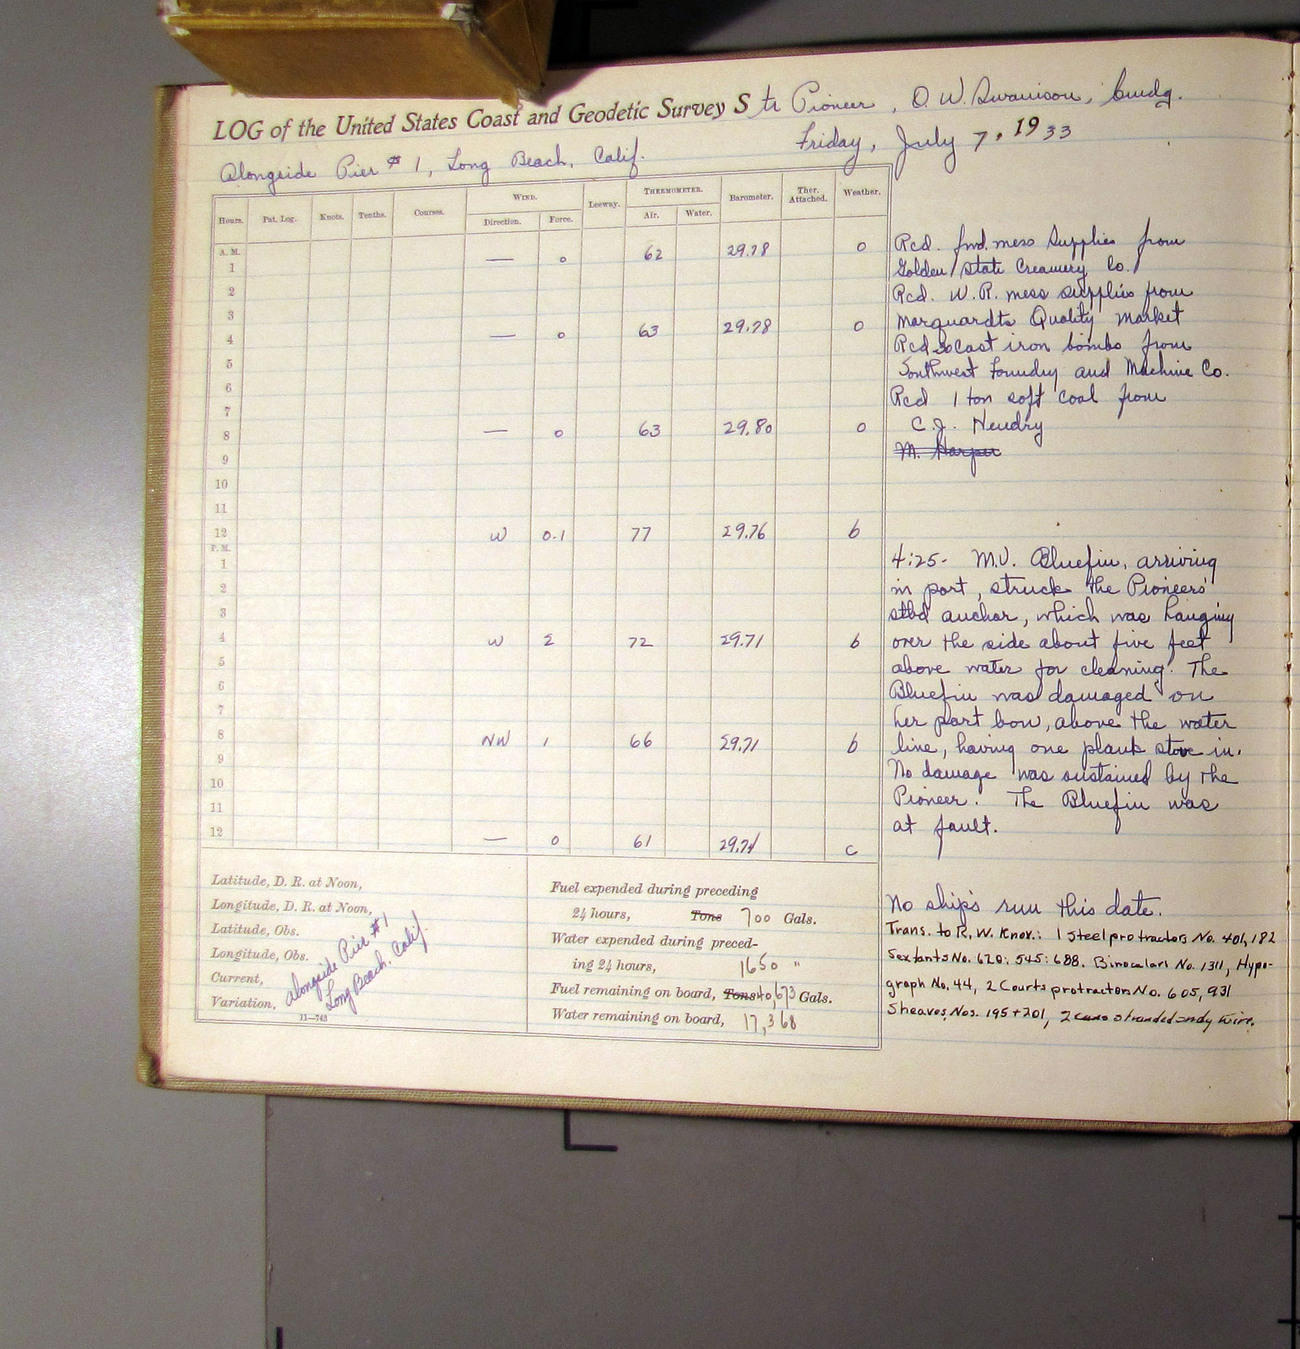 LOG of the United States Coast and Geodetic Survey Str Pioneer, O. W. Swainson, Cmdg.
Alongside Pier #1, Long Beach, Calif. Friday, July 7, 1933
Hours. Pat. Log. Knots. Tenths. Courses. WIND. Leeway. THERMOMETER. Barometer. Ther. Attached. Weather.
Direction. Force. Air. Water.
A. M.
— 0 62 29.78 0
1
2
3
4 — 0 63 29.78 0
5
6
7
8 — 0 63 29.80 0
9
10
11
12 W 0-1 77 29.76 b
P. M.
1
2
3
4 W 2 72 29.71 b
5
6
7
8 NW 1 66 29.71 b
9
10
11
12 — 0 61 29.74 c
Rcd. fwd. mess supplies from
Golden State Creamery Co.
Rcd. W. R. mess supplies from
Marquardts Quality Market
Rcd cast iron bombs from
Southwest Foundry and Machine Co.
Rcd 1 ton soft coal from
C. J. Hendry
M. Harper
4:25- M.V. Bluefin, arriving
in port, struck the Pioneers'
stbd anchor, which was hanging
over the side about five feet
above water for cleaning. The
Bluefin was damaged on
her port bow, above the water
line, having one plank stove in.
No damage was sustained by the
Pioneer. The Bluefin was
at fault.
No ship's run this date.
Trans. to R. W. Knox: 1 Steel protractors No. 401, 182
Sextants No. 620: 545: 688. Binoculars No. 1311, Hypo-
graph No. 44, 2 Courts protractors No. 605, 931
Sheaves, Nos. 195 + 201, 2 stranded wire.
Latitude, D. R. at Noon,
Longitude, D. R. at Noon,
Latitude, Obs.
Longitude, Obs.
Current,
Variation,
Alongside Pier #1
Long Beach. Calif.
11—743
Fuel expended during preceding
24 hours, Tons 700 Gals.
Water expended during preced-
ing 24 hours, 1650 "
Fuel remaining on board, Tons 40,673 Gals.
Water remaining on board, 17,368